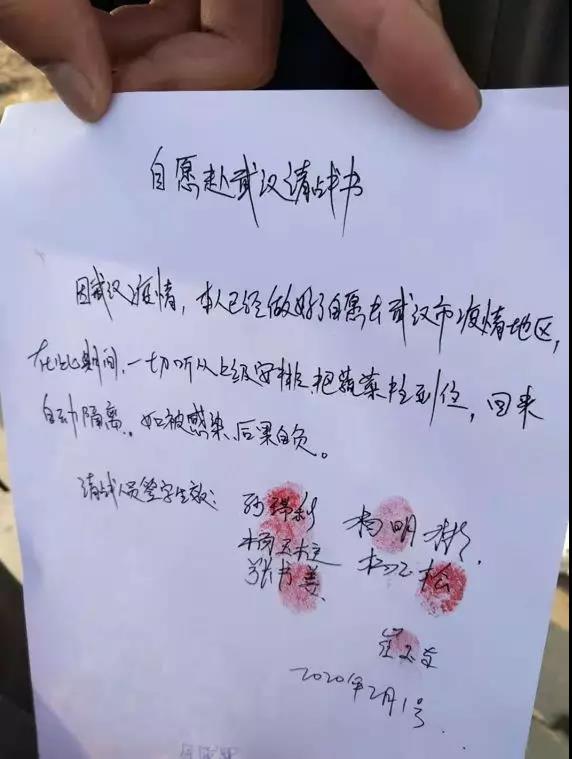 自愿赴武汉请战书
因武汉疫情,本人已经做好了自愿去武汉市疫情地区,
在此期间,一切听从上级安排,把蔬菜拉到位,回来
自动隔离,如被感染,后果自负。
请战人员签字生效:
杨明彬
2020年2月1号